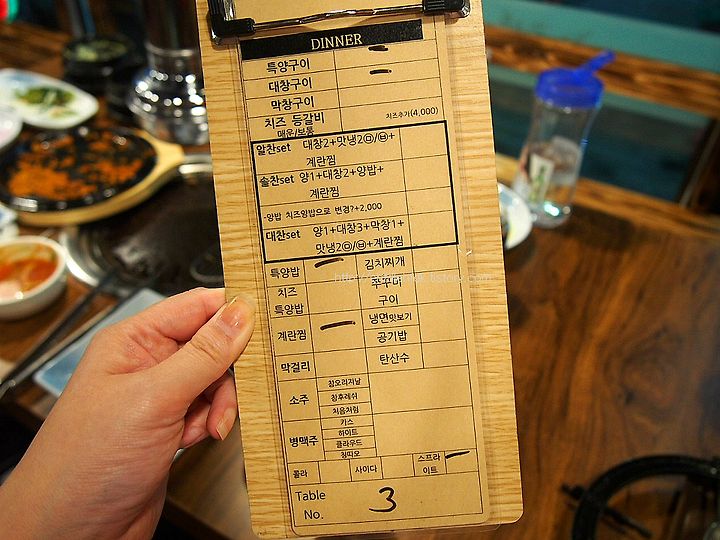 DINNER
특양구이
대창구이
막창구이
치즈 등갈비 치즈추가(4,000)
매운/보통
알찬set 대창2+맛냉2㉤/㉥+
계란찜
솔찬set 양1+대창2+양밥+
계란찜
-양밥 치즈양밥으로 변경?+2,000
대찬set 양1+대창3+막창1+
맛냉2㉤/㉥+계란찜
특양밥 김치찌개
치즈 쭈꾸미
특양밥 구이
계란찜 냉면맛보기
공기밥
막걸리 탄산수
소주 참오리지날
참후레쉬
처음처럼
병맥주 카스
하이트
클라우드
칭따오
콜라 사이다 스프라
이트
Table
No. 3